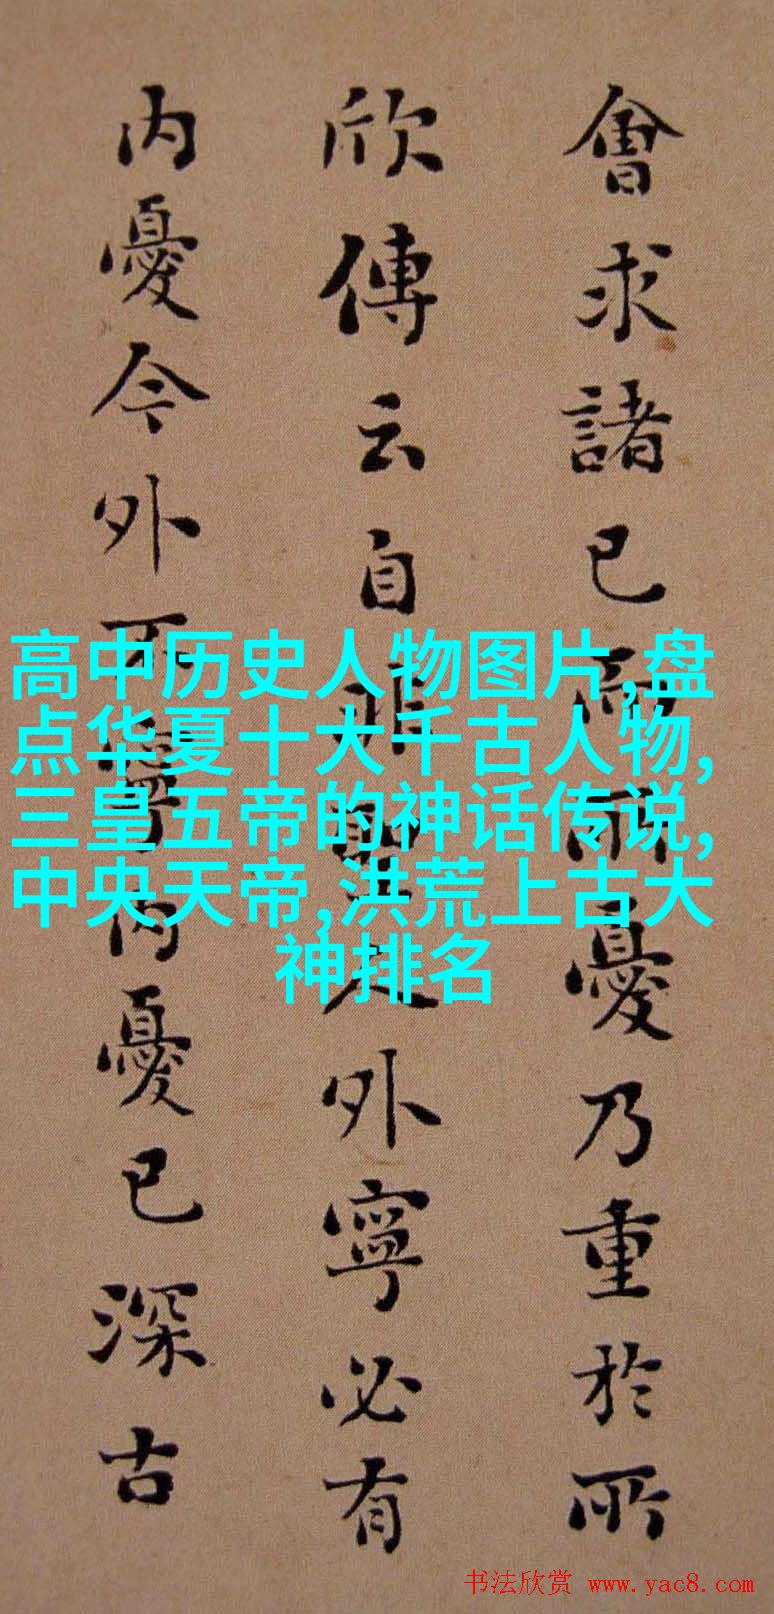 會求諸己而所憂乃重於所
欣傳云自非聖人外寧必有
内憂今外不寧内憂已深古
高中历史人物图片,盘
点华夏十大千古人物,
三皇五帝的神话传说,
中央天帝,洪荒上古大
神排名
书法欣赏 www.yac8.com